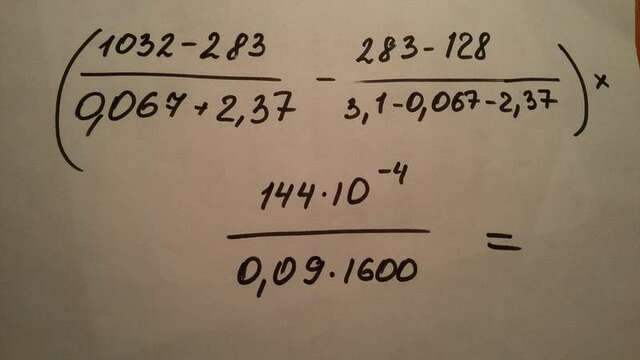 (1032-283 / 0,067+2,37 - 283-128 / 3,1-0,067-2,37) ×
144·10⁻⁴ / 0,09·1600 =